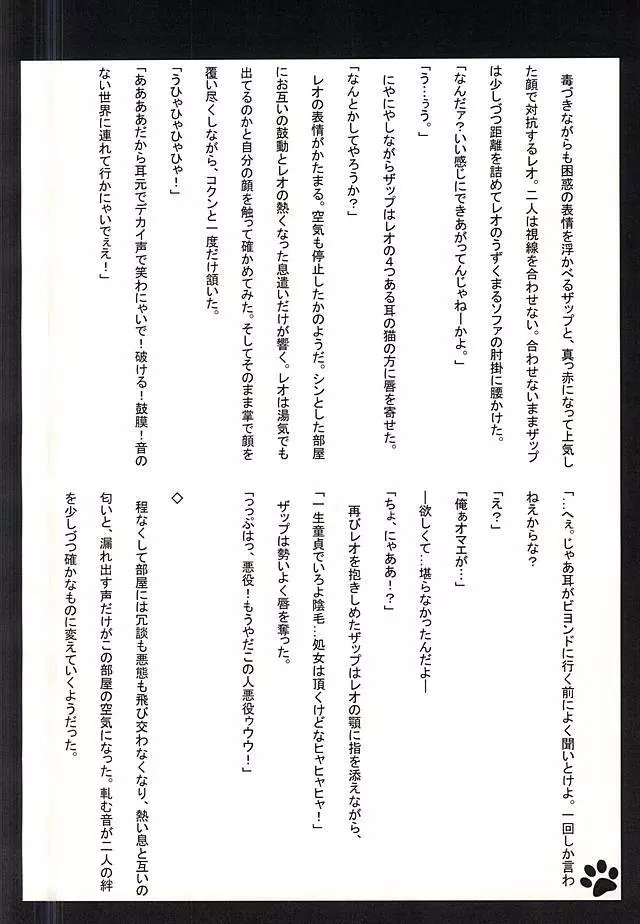 毒づきながらも困惑の表情を浮かべるザップと、真っ赤になって上気し
た顔で対抗するレオ。二人は視線を合わせない。合わせないままザップ
は少しづつ距離を詰めてレオのうずくまるソファの肘掛に腰かけた。
「なんだァ？いい感じにできあがってんじゃねーかよ。」
「う…ぅう。」
にやにやしながらザップはレオの４つある耳の猫の方に唇を寄せた。
「なんとかしてやろうか？」
レオの表情がかたまる。空気も停止したかのようだ。シンとした部屋
にお互いの鼓動とレオの熱くなった息遣いだけが響く。レオは湯気でも
出てるのかと自分の顔を触って確かめてみた。そしてそのまま掌で顔を
覆い尽くしながら、コクンと一度だけ頷いた。
「うひゃひゃひゃひゃ！」
「ああああだから耳元でデカイ声で笑わにゃいで！破ける！鼓膜！音の
ない世界に連れて行かにゃいでぇえ！」
「…へぇ。じゃあ耳がビヨンドに行く前によく聞いとけよ。一回しか言わ
ねえからな？
「え？」
「俺ぁオマエが…」
―欲しくて…堪らなかったんだよ―
「ちょ、にゃああ！？」
再びレオを抱きしめたザップはレオの顎に指を添えながら、
「一生童貞でいろよ陰毛…処女は頂くけどなヒャヒャヒャ！」
ザップは勢いよく唇を奪った。
「っっぷはっ、悪役！もうやだこの人悪役ゥウウ！」
◇
程なくして部屋には冗談も悪態も飛び交わなくなり、熱い息と互いの
匂いと、漏れ出す声だけがこの部屋の空気になった。軋む音が二人の絆
を少しづつ確かなものに変えていくようだった。